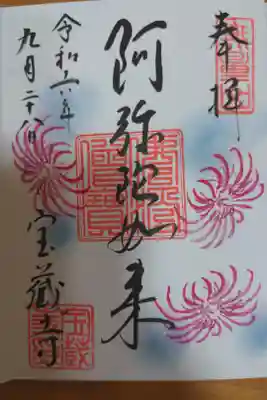 奉拝
阿弥陀如来
宝蔵寺
令和六年
九月二十八日